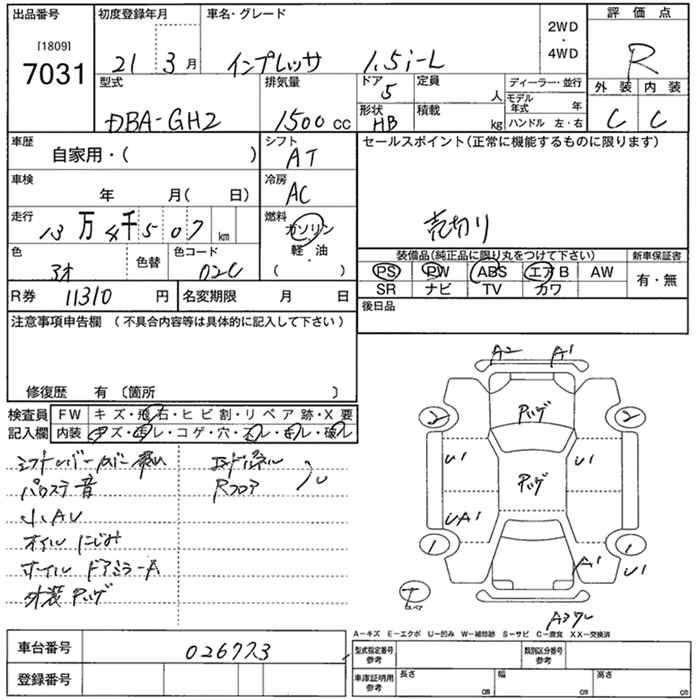 出品番号 初度登録年月 車名・グレード 2WD・4WD 評価点
[1809]
7031 21 3月 インプレッサ 1.5i-L R
型式 排気量 ドア 定員 ディーラー・並行 外装 内装
DBA-GH2 1500cc 5 人 モデル年式 年 C C
形状 HB 積載 kg ハンドル 左・右
車歴 自家用・( ) シフト AT セールスポイント(正常に機能するものに限ります)
車検 年 月( 日) 冷房 AC
走行 13万4千507km 燃料 ガソリン・軽油( ) 売切り
色 アオ 色替 色コード 02C 装備品(純正品に限り丸をつけて下さい) 新車保証書
PS PW ABS エアB AW 有・無
SR ナビ TV カワ
R券 11310円 名変期限 月 日 後日品
注意事項申告欄 (不具合内容等は具体的に記入して下さい)
修復歴 有 〔箇所 〕
検査員 FW キズ・飛石・ヒビ割・リペア跡・X要
記入欄 内装 キズ・汚レ・コゲ・穴・スレ・切レ・破レ
パワステ音 Rフロア
小AU
オイルにじみ
ホイル ドアミラーA
A2 A1
2 2
U1 U1
UA1
1 1
A1 U1
スペア
A-キズ E-エクボ U-凹み W-補修跡 S-サビ C-腐食 XX-交換済
車台番号 026773 型式指定番号 参考 類別区分番号 参考
登録番号 車庫証明用 参考 長さ cm 幅 cm 高さ cm